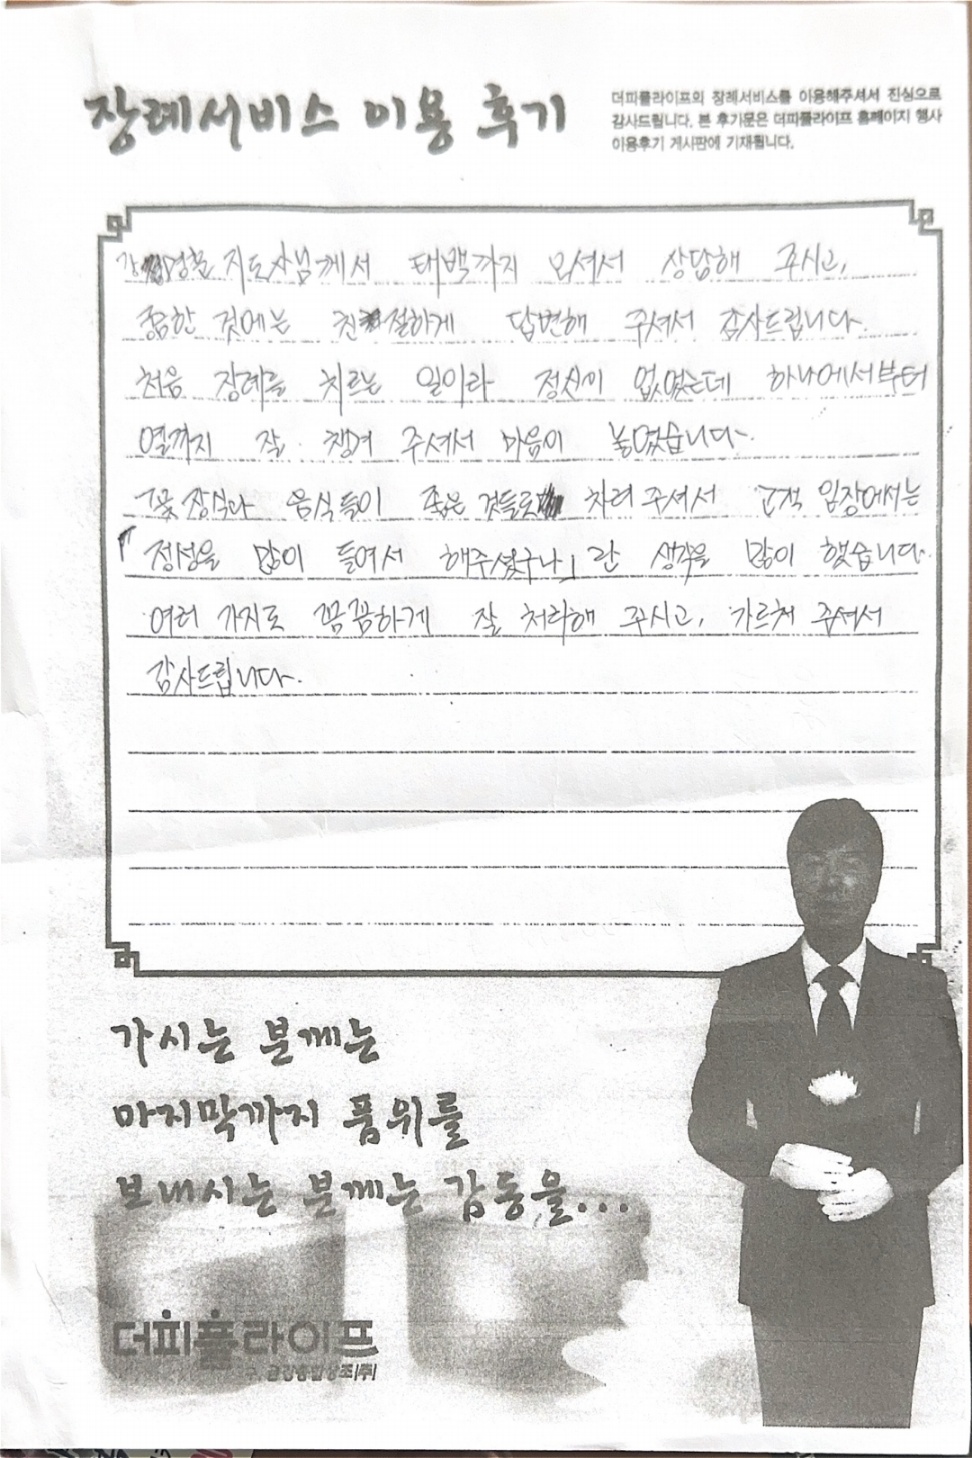 장례서비스 이용 후기
더피플라이프의 장례서비스를 이용해주셔서 진심으로
감사드립니다. 본 후기문은 더피플라이프 홈페이지 행사
이용후기 게시판에 기재됩니다.
지도사님께서 태백까지 오셔서 상담해 주시고,
궁금한 것에는 친절하게 답변해 주셔서 감사드립니다.
처음 장례를 치르는 일이라 정신이 없었는데 하나에서부터
열까지 잘 챙겨 주셔서 마음이 놓였습니다.
꽃 장식과 음식들이 좋은 것들로 차려 주셔서 고객 입장에서는
「정성을 많이 들여서 해주셨구나」란 생각을 많이 했습니다.
여러 가지로 꼼꼼하게 잘 처리해 주시고, 가르쳐 주셔서
감사드립니다.
가시는 분께는
마지막까지 품위를
보내시는 분께는 감동을...
더피플라이프
구. 금강종합상조(주)